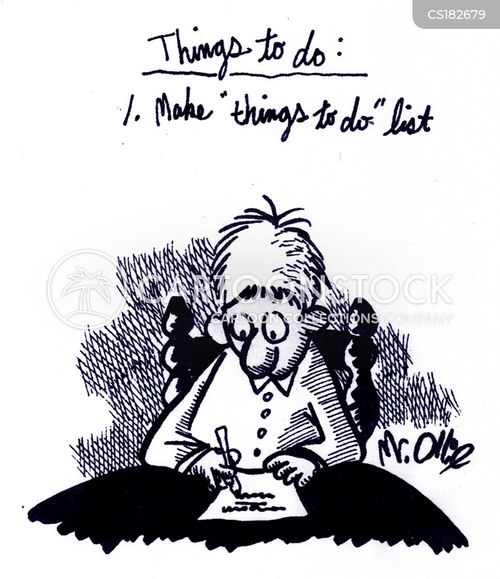 CS182679
Things to do:
1. Make "things to do" list
CARTOONSTOCK
CARTOON COLLECTIONS COMPANY